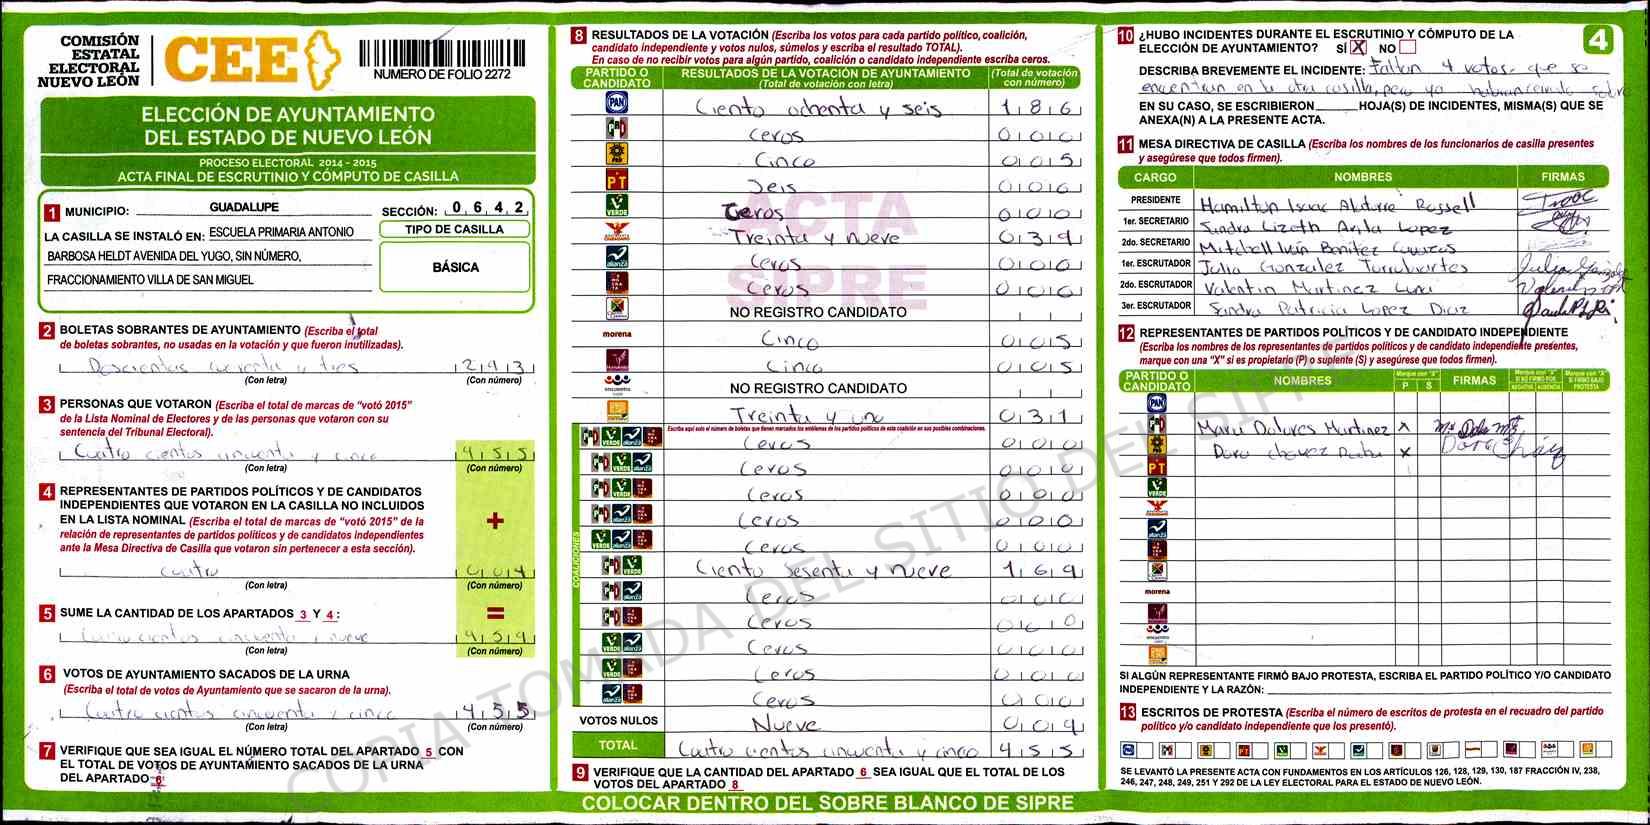 COMISIÓN
ESTATAL
ELECTORAL
NUEVO LEÓN
CEE
NUMERO DE FOLIO 2272
ELECCIÓN DE AYUNTAMIENTO
DEL ESTADO DE NUEVO LEÓN
PROCESO ELECTORAL 2014 - 2015
ACTA FINAL DE ESCRUTINIO Y CÓMPUTO DE CASILLA
1 MUNICIPIO: GUADALUPE SECCIÓN: 0 6 4 2
LA CASILLA SE INSTALÓ EN: ESCUELA PRIMARIA ANTONIO
BARBOSA HELDT AVENIDA DEL YUGO, SIN NÚMERO,
FRACCIONAMIENTO VILLA DE SAN MIGUEL
TIPO DE CASILLA
BÁSICA
2 BOLETAS SOBRANTES DE AYUNTAMIENTO (Escriba el total
de boletas sobrantes, no usadas en la votación y que fueron inutilizadas).
tres 293
(Con letra) (Con número)
3 PERSONAS QUE VOTARON (Escriba el total de marcas de “votó 2015”
de la Lista Nominal de Electores y de las personas que votaron con su
sentencia del Tribunal Electoral).
Cuatro cientos cincuenta y cinco 455
(Con letra) (Con número)
4 REPRESENTANTES DE PARTIDOS POLÍTICOS Y DE CANDIDATOS
INDEPENDIENTES QUE VOTARON EN LA CASILLA NO INCLUIDOS
EN LA LISTA NOMINAL (Escriba el total de marcas de “votó 2015” de la
relación de representantes de partidos políticos y de candidatos independientes
ante la Mesa Directiva de Casilla que votaron sin pertenecer a esta sección).
+
cuatro 004
(Con letra) (Con número)
5 SUME LA CANTIDAD DE LOS APARTADOS 3 Y 4: =
Cuatro cientos cincuenta y nueve 459
(Con letra) (Con número)
6 VOTOS DE AYUNTAMIENTO SACADOS DE LA URNA
(Escriba el total de votos de Ayuntamiento que se sacaron de la urna).
Cuatro cientos cincuenta y cinco 455
(Con letra) (Con número)
7 VERIFIQUE QUE SEA IGUAL EL NÚMERO TOTAL DEL APARTADO 5 CON
EL TOTAL DE VOTOS DE AYUNTAMIENTO SACADOS DE LA URNA
DEL APARTADO 6
8 RESULTADOS DE LA VOTACIÓN (Escriba los votos para cada partido político, coalición,
candidato independiente y votos nulos, súmelos y escriba el resultado TOTAL).
En caso de no recibir votos para algún partido, coalición o candidato independiente escriba ceros.
PARTIDO O CANDIDATO RESULTADOS DE LA VOTACIÓN DE AYUNTAMIENTO (Total de votación con letra) (Total de votación con número)
PAN Ciento ochenta y seis 186
PRI Ceros 000
PRD Cinco 005
PT Seis 006
VERDE Ceros 000
Treinta y nueve 039
alianza Ceros 000
Ceros 000
NO REGISTRO CANDIDATO
morena Cinco 005
Cinco 005
NO REGISTRO CANDIDATO
Treinta y uno 031
Escriba aquí solo el número de boletas que tienen marcados los emblemas de los partidos políticos de esta coalición en sus posibles combinaciones.
COALICIONES
Ceros 000
Ceros 000
Ceros 000
Ceros 000
Ceros 000
Ciento sesenta y nueve 169
Ceros 000
Ceros 000
Ceros 000
Ceros 000
Ceros 000
VOTOS NULOS Nueve 009
TOTAL Cuatro cientos cincuenta y cinco 455
9 VERIFIQUE QUE LA CANTIDAD DEL APARTADO 6 SEA IGUAL QUE EL TOTAL DE LOS
VOTOS DEL APARTADO 8
COLOCAR DENTRO DEL SOBRE BLANCO DE SIPRE
ACTA
SIPRE
COPIA TOMADA DEL SITIO DEL SIPRE
10 ¿HUBO INCIDENTES DURANTE EL ESCRUTINIO Y CÓMPUTO DE LA
ELECCIÓN DE AYUNTAMIENTO? SÍ X NO
4
DESCRIBA BREVEMENTE EL INCIDENTE: Faltan 4 votos que se
encuentran en la otra casilla, pero ya
EN SU CASO, SE ESCRIBIERON ____ HOJA(S) DE INCIDENTES, MISMA(S) QUE SE
ANEXA(N) A LA PRESENTE ACTA.
11 MESA DIRECTIVA DE CASILLA (Escriba los nombres de los funcionarios de casilla presentes
y asegúrese que todos firmen).
CARGO NOMBRES FIRMAS
PRESIDENTE Hamilton Isaac Alatorre Rossell
1er. SECRETARIO Sandra Lizeth Avila Lopez
2do. SECRETARIO Mitchell Iván Benítez
1er. ESCRUTADOR Julia Gonzalez
2do. ESCRUTADOR Valentin Martinez Luna
3er. ESCRUTADOR Sandra Patricia Lopez Diaz
12 REPRESENTANTES DE PARTIDOS POLÍTICOS Y DE CANDIDATO INDEPENDIENTE
(Escriba los nombres de los representantes de partidos políticos y de candidato independiente presentes,
marque con una “X” si es propietario (P) o suplente (S) y asegúrese que todos firmen).
PARTIDO O CANDIDATO NOMBRES Marque con "X" P S FIRMAS Marque con "X" SI NO FIRMÓ POR NEGATIVA AUSENCIA Marque con "X" SI FIRMÓ BAJO PROTESTA
PAN
PRI Maria Dolores Martinez X
PRD Dora Chavez X
PT
VERDE
alianza
morena
SI ALGÚN REPRESENTANTE FIRMÓ BAJO PROTESTA, ESCRIBA EL PARTIDO POLÍTICO Y/O CANDIDATO
INDEPENDIENTE Y LA RAZÓN:
13 ESCRITOS DE PROTESTA (Escriba el número de escritos de protesta en el recuadro del partido
político y/o candidato independiente que los presentó).
SE LEVANTÓ LA PRESENTE ACTA CON FUNDAMENTOS EN LOS ARTÍCULOS 126, 128, 129, 130, 187 FRACCIÓN IV, 238,
246, 247, 248, 249, 251 Y 292 DE LA LEY ELECTORAL PARA EL ESTADO DE NUEVO LEÓN.